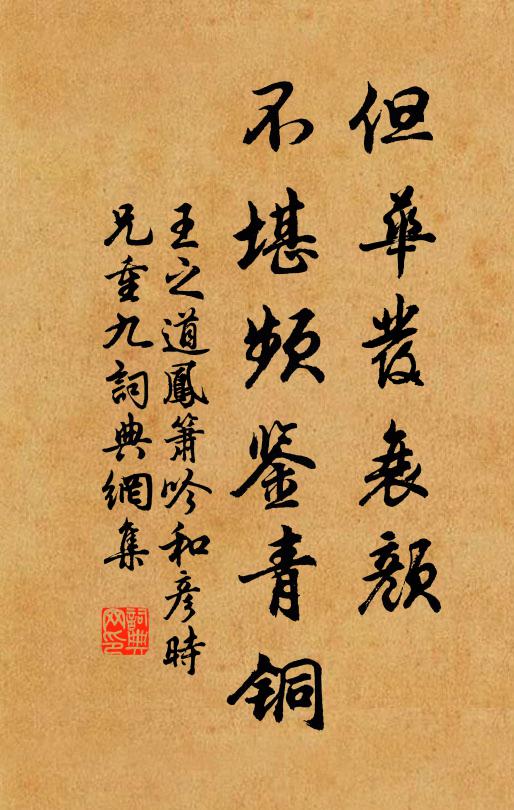 但華發衰顔
不堪頻鑒青铜
王之道鳳簫吟和彦時
兄重九詞典網集
詞典网印